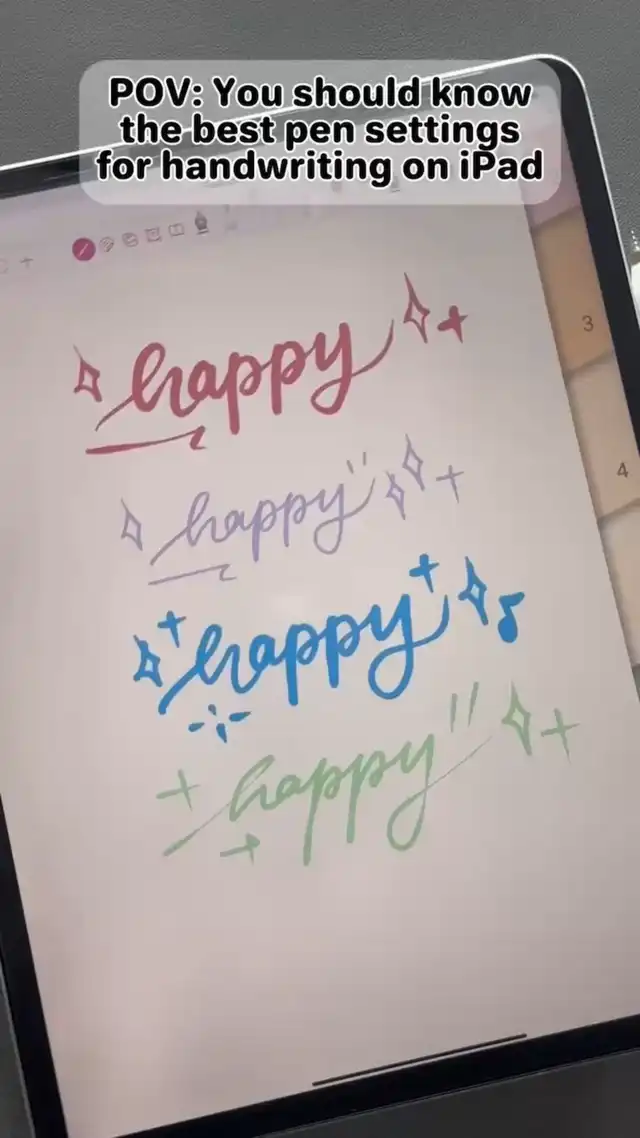 POV: You should know
the best pen settings
for handwriting on iPad
3
happy
4
happy
happy
happy